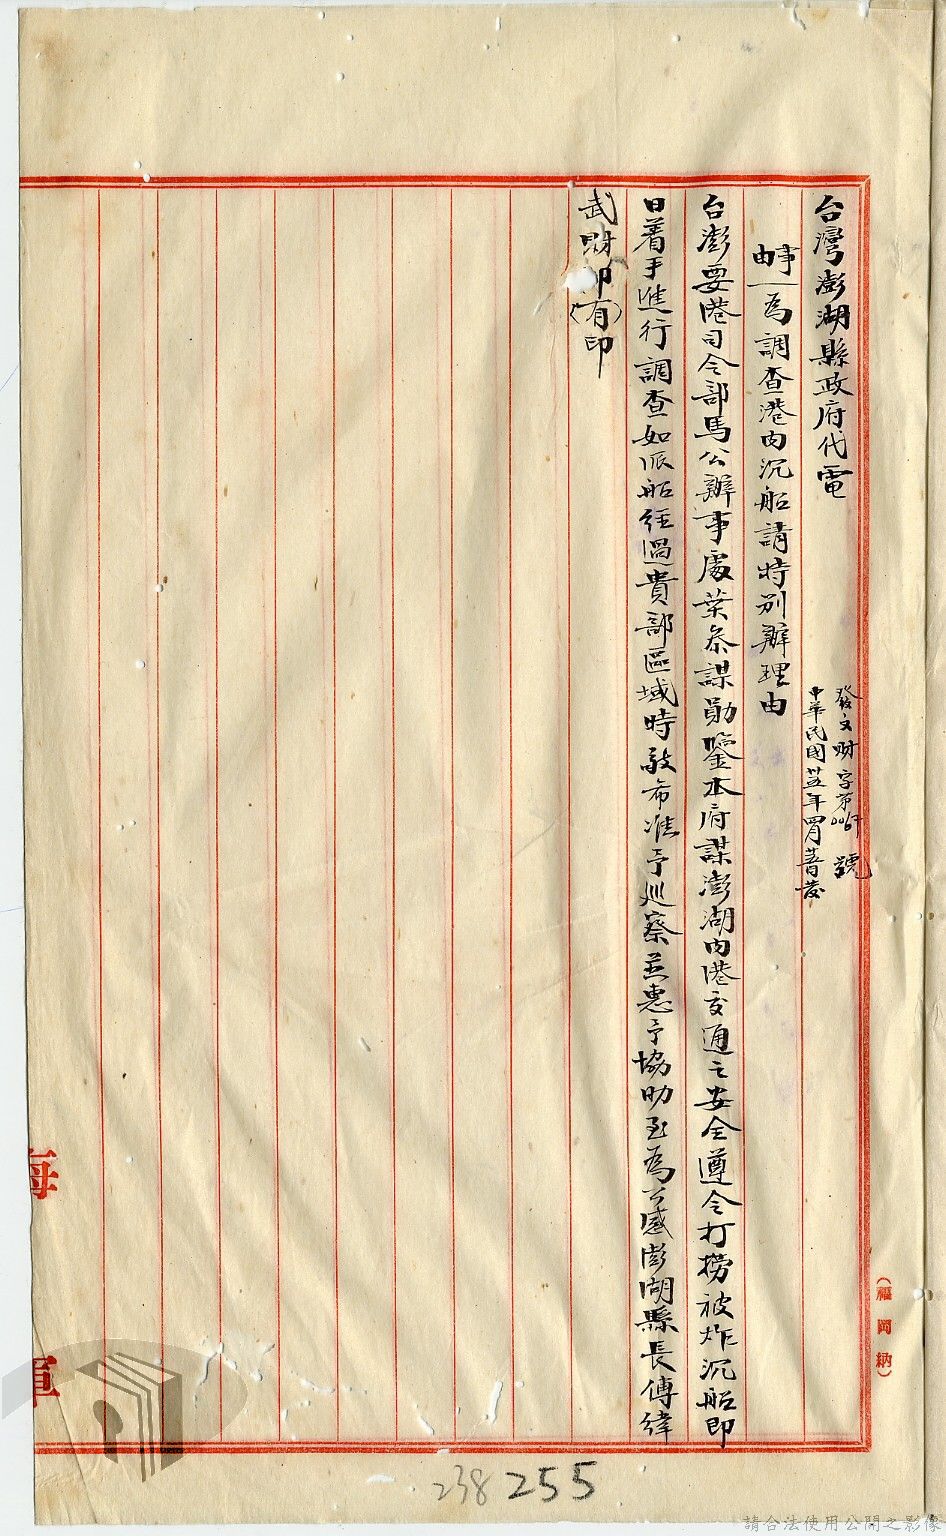 台灣澎湖縣政府代電
發文財字第0067號
中華民國卅五年四月 日發
事由一為調查港內沉船請特別辦理由
台澎要港司令部馬公辦事處葉參謀勛鑒本府謀澎湖內港交通之安全遵令打撈被炸沉船即
日着手進行調查如派船經過貴部區域時敬希准予巡察並惠予協助至為公感澎湖縣長傅緯
武財 (有)印
(福岡納)
海軍
238 255
請合法使用公開之影像